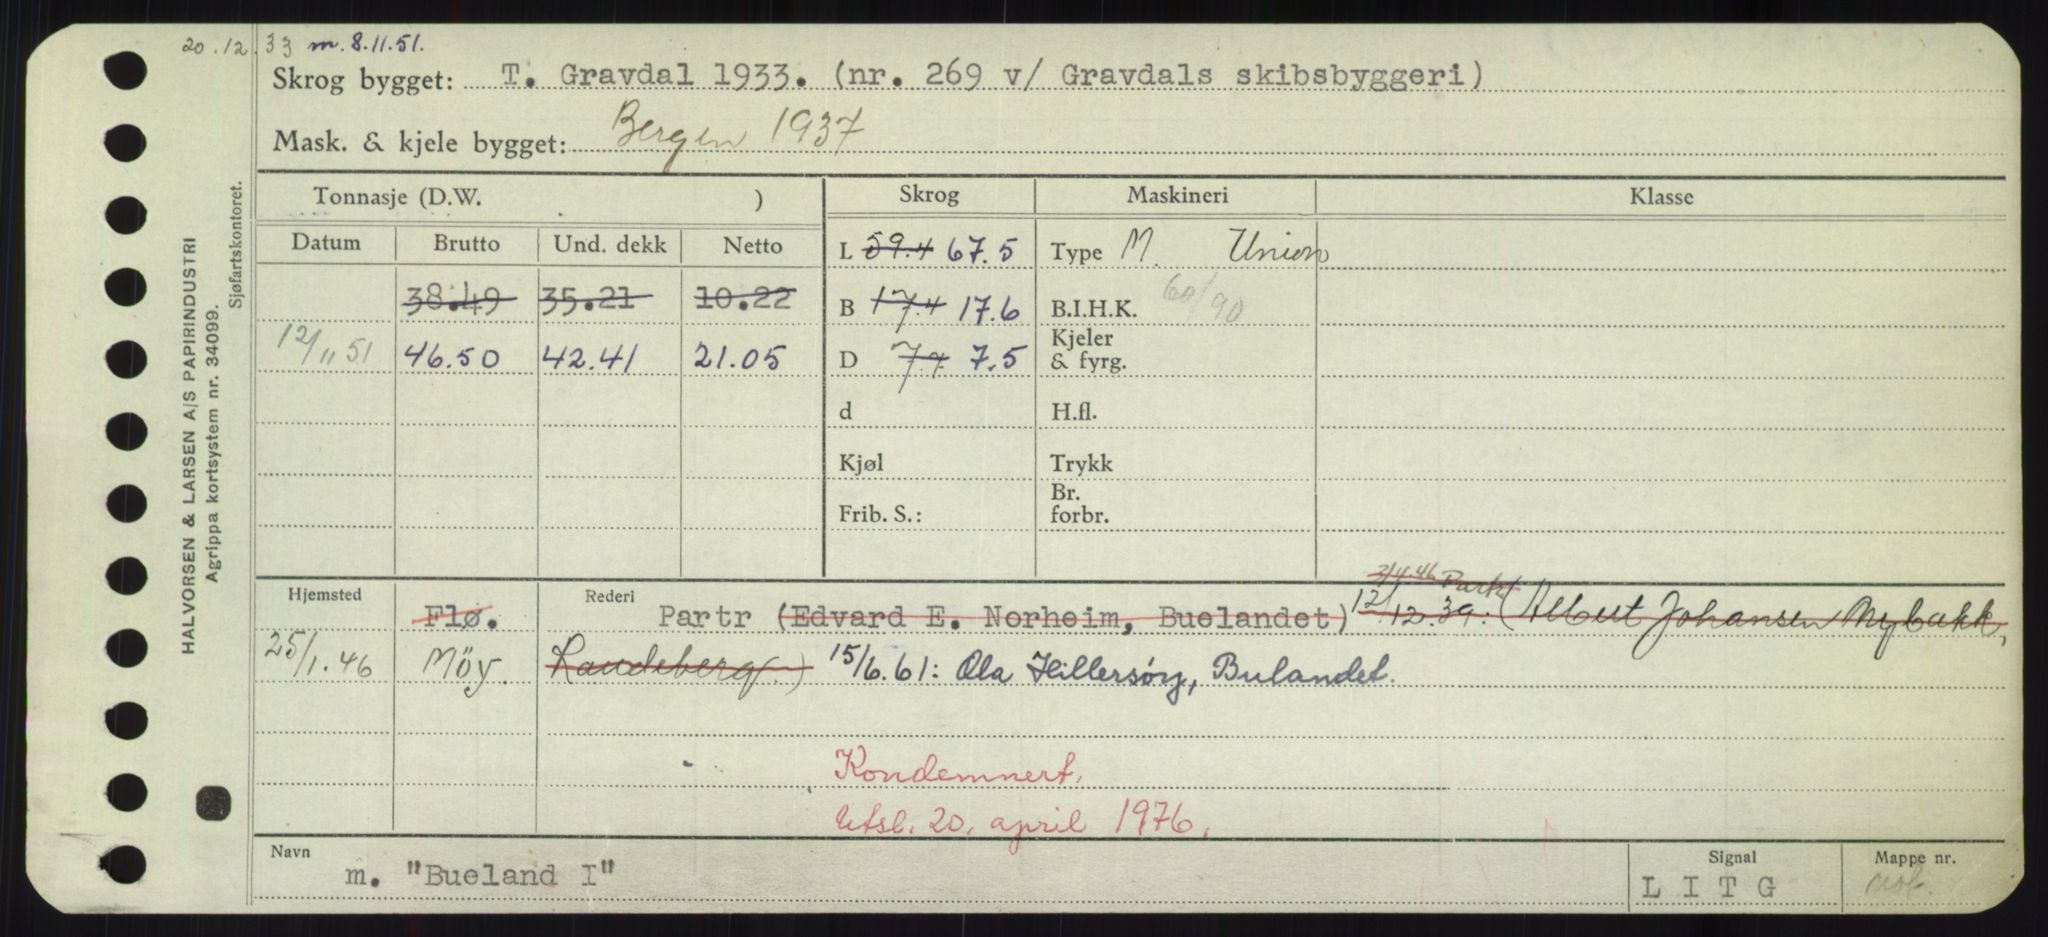 20.12.33 m. 8.11.51.
Skrog bygget: T. Gravdal 1933. (nr. 269 v/ Gravdals skibsbyggeri)
Mask. & kjele bygget: Bergen 1937
HALVORSEN & LARSEN A/S PAPIRINDUSTRI
Agrippa kortsystem nr. 34099.
Sjøfartskontoret.
Tonnasje (D.W. ) Skrog Maskineri Klasse
Datum Brutto Und. dekk Netto L 59.4 67.5 Type M. Union
38.49 35.21 10.22 B 17.4 17.6 B.I.H.K. 60/90
12/11 51 46.50 42.41 21.05 D 7.4 7.5 Kjeler
& fyrg.
d H.fl.
Kjøl Trykk
Br.
Frib. S.: forbr.
3/4.46 Partr
Hjemsted Flø. Rederi Partr (Edvard E. Norheim, Buelandet) 12/12.39. (Albert Johansen Nybakk,
25/1.46 Möy. Landeberg.) 15/6.61: Ola Hillersöy, Bulandet.
Kondemnert.
Utsl. 20. april 1976.
Navn m. "Bueland I" Signal L I T G Mappe nr. mob.